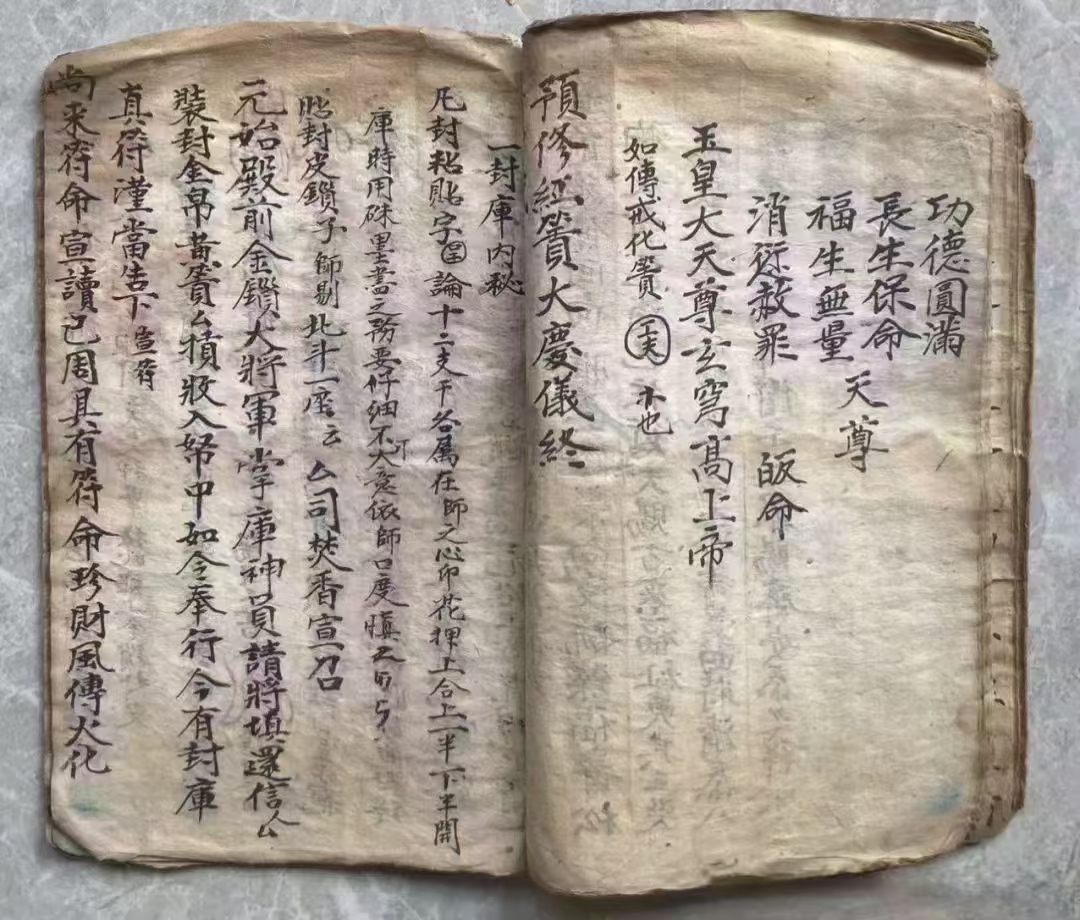 功德圓滿
長生保命
福生無量 天尊
消愆赦罪 皈命
玉皇大天尊玄穹高上帝
如傳戒化籄 也
預修經籄大慶儀終
一封庫內秘
凡封粘貼字 論十二支干各屬在師之心印花押上合上一半下半開
庫時用硃墨書之務要仔細不可大意依師口度慎之
貼封皮鎖子 師剔北斗一座云 厶司焚香宣一刀召
元始殿前金鎖大將軍掌庫神員請將填還信人厶
裝封金帛黃籄厶槓收入帑中如令奉行今有封庫
真符謹當告下 宣符
尚來符命宣讀已周具有符命珍財風傳火化